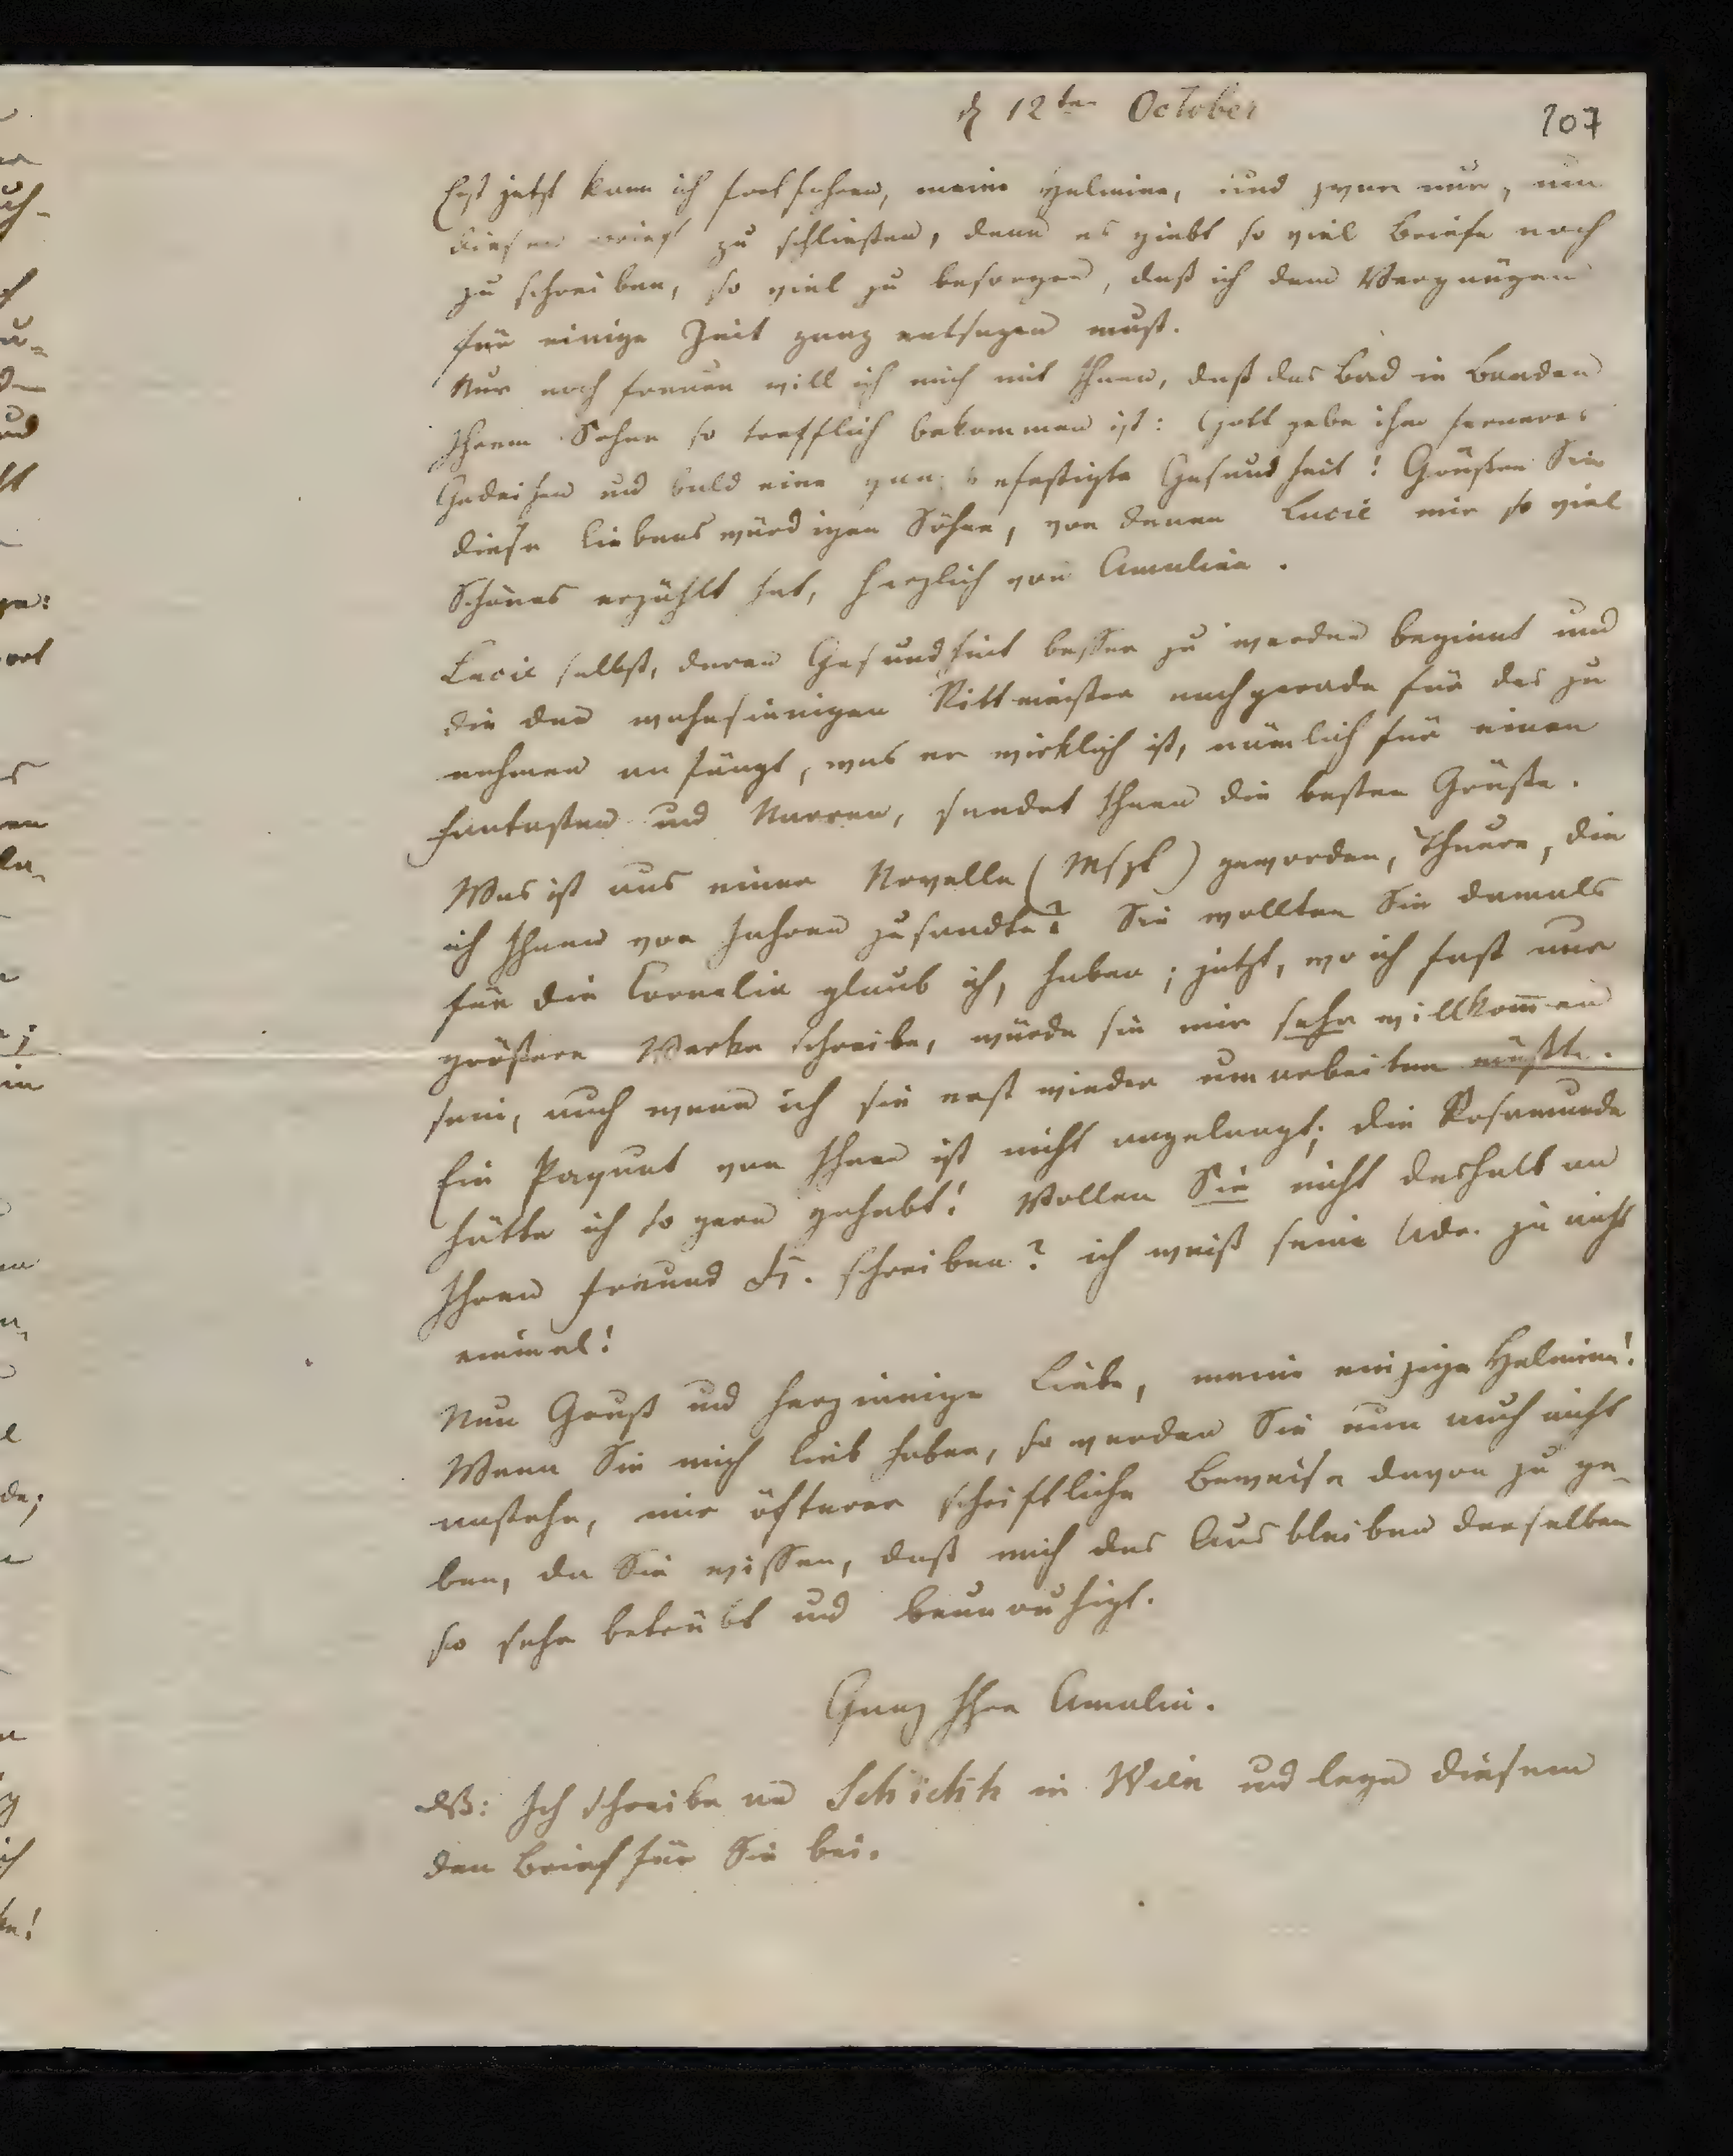 d 12ten October
107
Erst jetzt kann ich fortfahren, meine Helmina, und zwar nur, um
diesen Brief zu schließen, denn es giebt so viel Briefe noch
zu schreiben, so viel zu besorgen, daß ich dem Vergnügen
für einige Zeit ganz entsagen muß.
Nur noch freuen will ich mich mit Ihnen, daß das Bad in Baaden
Ihrem Sohne so trefflich bekommen ist: Gott gebe ihm ferneres
Gedeihen und bald eine ganz befestigte Gesundheit! Grüßen Sie
diese liebenswürdigen Söhne, von denen Lucie mir so viel
Schönes erzählt hat, herzlich von Amalien.
Lucie selbst, deren Gesundheit besser zu werden beginnt und
die den wahnsinnigen Rittmeister nachgerade für das zu
nehmen anfängt, was er wirklich ist, nämlich für einen
Fantasten und Narren, sendet Ihnen die besten Grüße.
Was ist aus einer Novelle (Mspt) geworden, Theure, die
ich Ihnen vor Jahren zusandte? Sie wollten Sie damals
für die Cornelia glaub ich, haben; jetzt, wo ich fast nur
größere Werke schreibe, würde sie mir sehr willkom̅en
sein, auch wenn ich sie erst wieder umarbeiten müßte.
Ein Paquet von Ihnen ist nicht angelangt; die Rosamunde
hätte ich so gern gehabt! Wollen Sie nicht deshalb an
Ihren Freund schreiben? ich weiß seine Adr. ja nicht
einmal!
Nun Gruß und herzinnige Liebe, meine einzige Helmina!
Wenn Sie mich lieb haben, so werden Sie nun auch nicht
anstehn, mir öfterer schriftliche Beweise davon zu ge-
ben, da Sie wissen, daß mich das Ausbleiben derselben
so sehr betrübt und beunruhigt.
Ganz Ihre Amalie.
Ich schreibe an Schickh in Wien und lege diesem
den Brief für Sie bei.